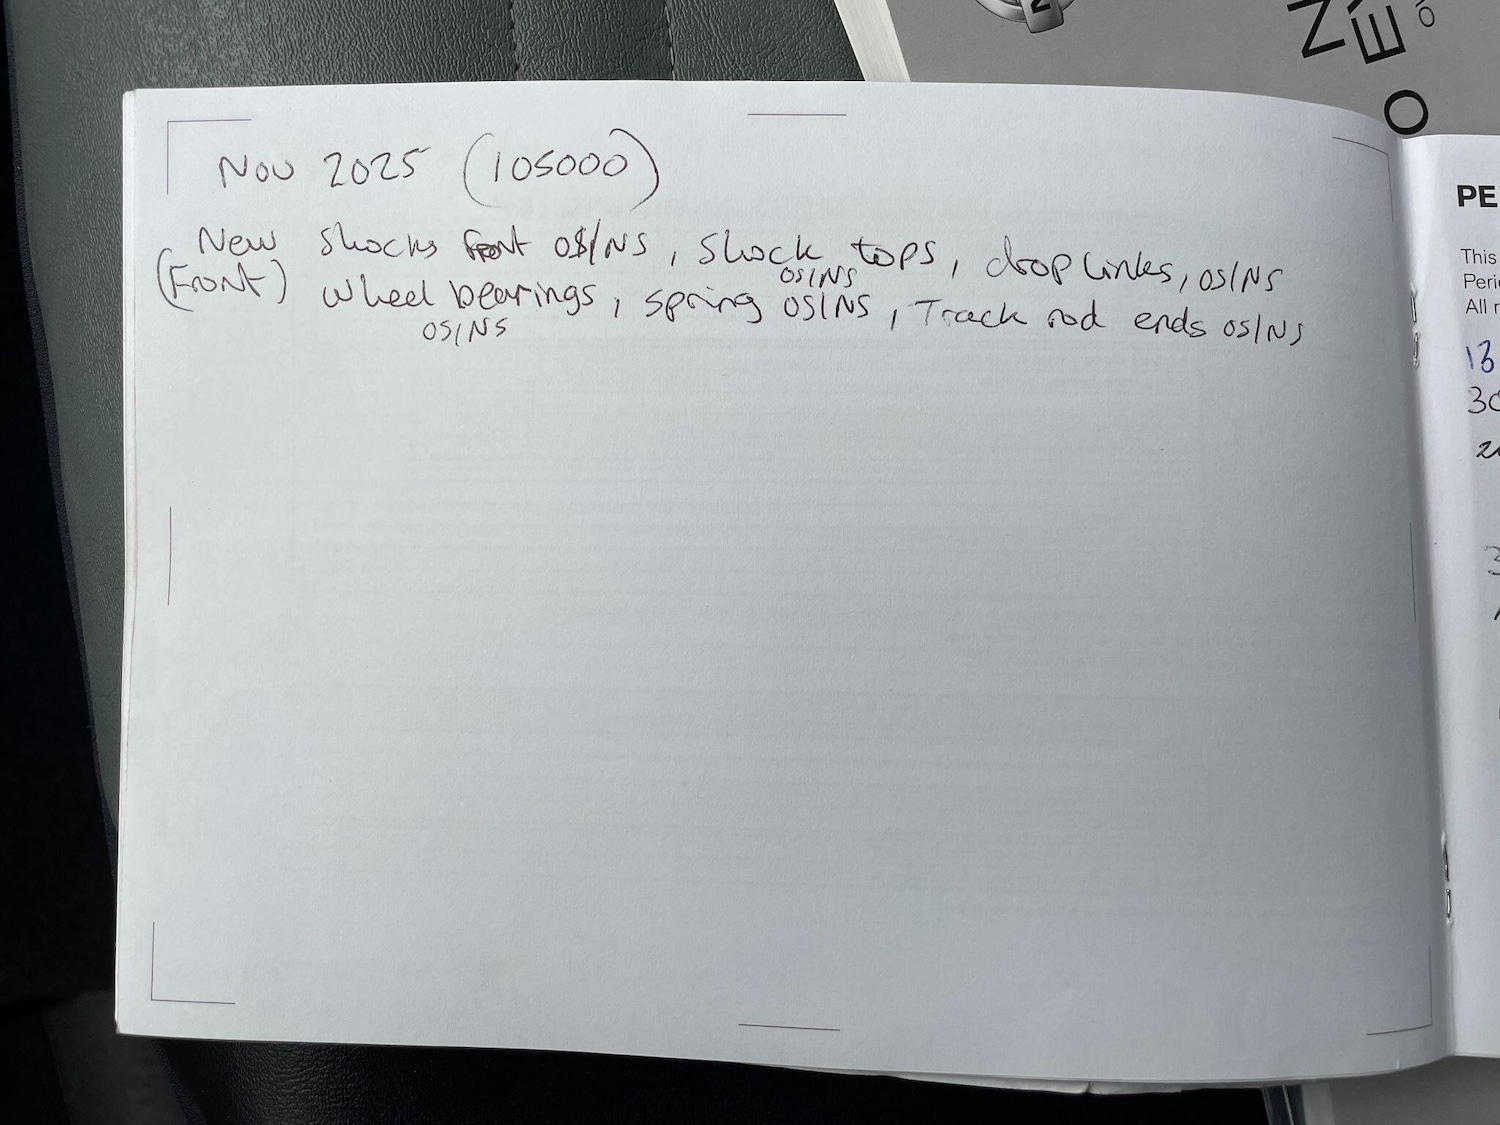 Nov 2025 (105000)
New shocks front OS/NS, shock tops, drop links, OS/NS
OS/NS
(Front) wheel bearings, spring OS/NS, Track rod ends OS/NS
OS/NS
PE
This
Peri
All r
13
30